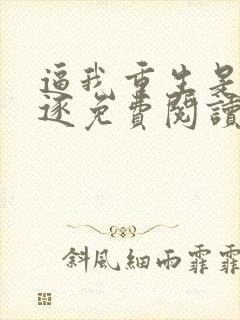 逼我重生是
逐免費閱讀
斜風細雨霏霏